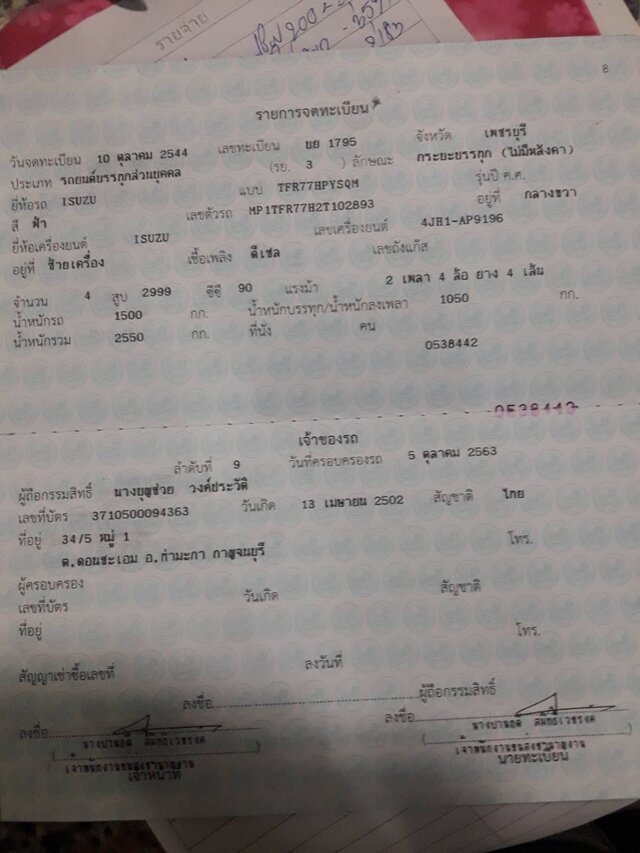 รายจ่าย
8
รายการจดทะเบียน
วันจดทะเบียน 10 ตุลาคม 2544 เลขทะเบียน ยย 1795 จังหวัด เพชรบุรี
ประเภท รถยนต์บรรทุกส่วนบุคคล (รย. 3 ) ลักษณะ กระบะบรรทุก (ไม่มีหลังคา)
ยี่ห้อรถ ISUZU แบบ TFR77HPYSQM รุ่นปี ค.ศ.
สี ฟ้า เลขตัวรถ MP1TFR77H2T102893 อยู่ที่ กลางขวา
ยี่ห้อเครื่องยนต์ ISUZU เลขเครื่องยนต์ 4JH1-AP9196
อยู่ที่ ซ้ายเครื่อง เชื้อเพลิง ดีเซล เลขถังแก๊ส
จำนวน 4 สูบ 2999 ซีซี 90 แรงม้า 2 เพลา 4 ล้อ ยาง 4 เส้น
น้ำหนักรถ 1500 กก. น้ำหนักบรรทุก/น้ำหนักลงเพลา 1050 กก.
น้ำหนักรวม 2550 กก. ที่นั่ง คน
0538442
เจ้าของรถ
ลำดับที่ 9 วันที่ครอบครองรถ 5 ตุลาคม 2563
ผู้ถือกรรมสิทธิ์ นางบุญช่วย วงค์ประวัติ
เลขที่บัตร 3710500094363 วันเกิด 13 เมษายน 2502 สัญชาติ ไทย
ที่อยู่ 34/5 หมู่ 1 โทร.
ต.ดอนชะเอม อ.ท่ามะกา กาญจนบุรี
ผู้ครอบครอง
เลขที่บัตร วันเกิด สัญชาติ
ที่อยู่ โทร.
สัญญาเช่าซื้อเลขที่ ลงวันที่
ลงชื่อ ผู้ถือกรรมสิทธิ์
ลงชื่อ ลงชื่อ
เจ้าพนักงานขนส่งชำนาญงาน เจ้าพนักงานขนส่งชำนาญงาน
เจ้าหน้าที่ นายทะเบียน